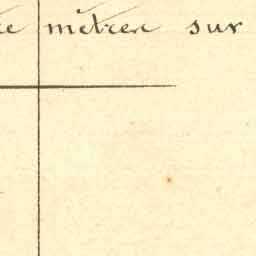 mètres sur